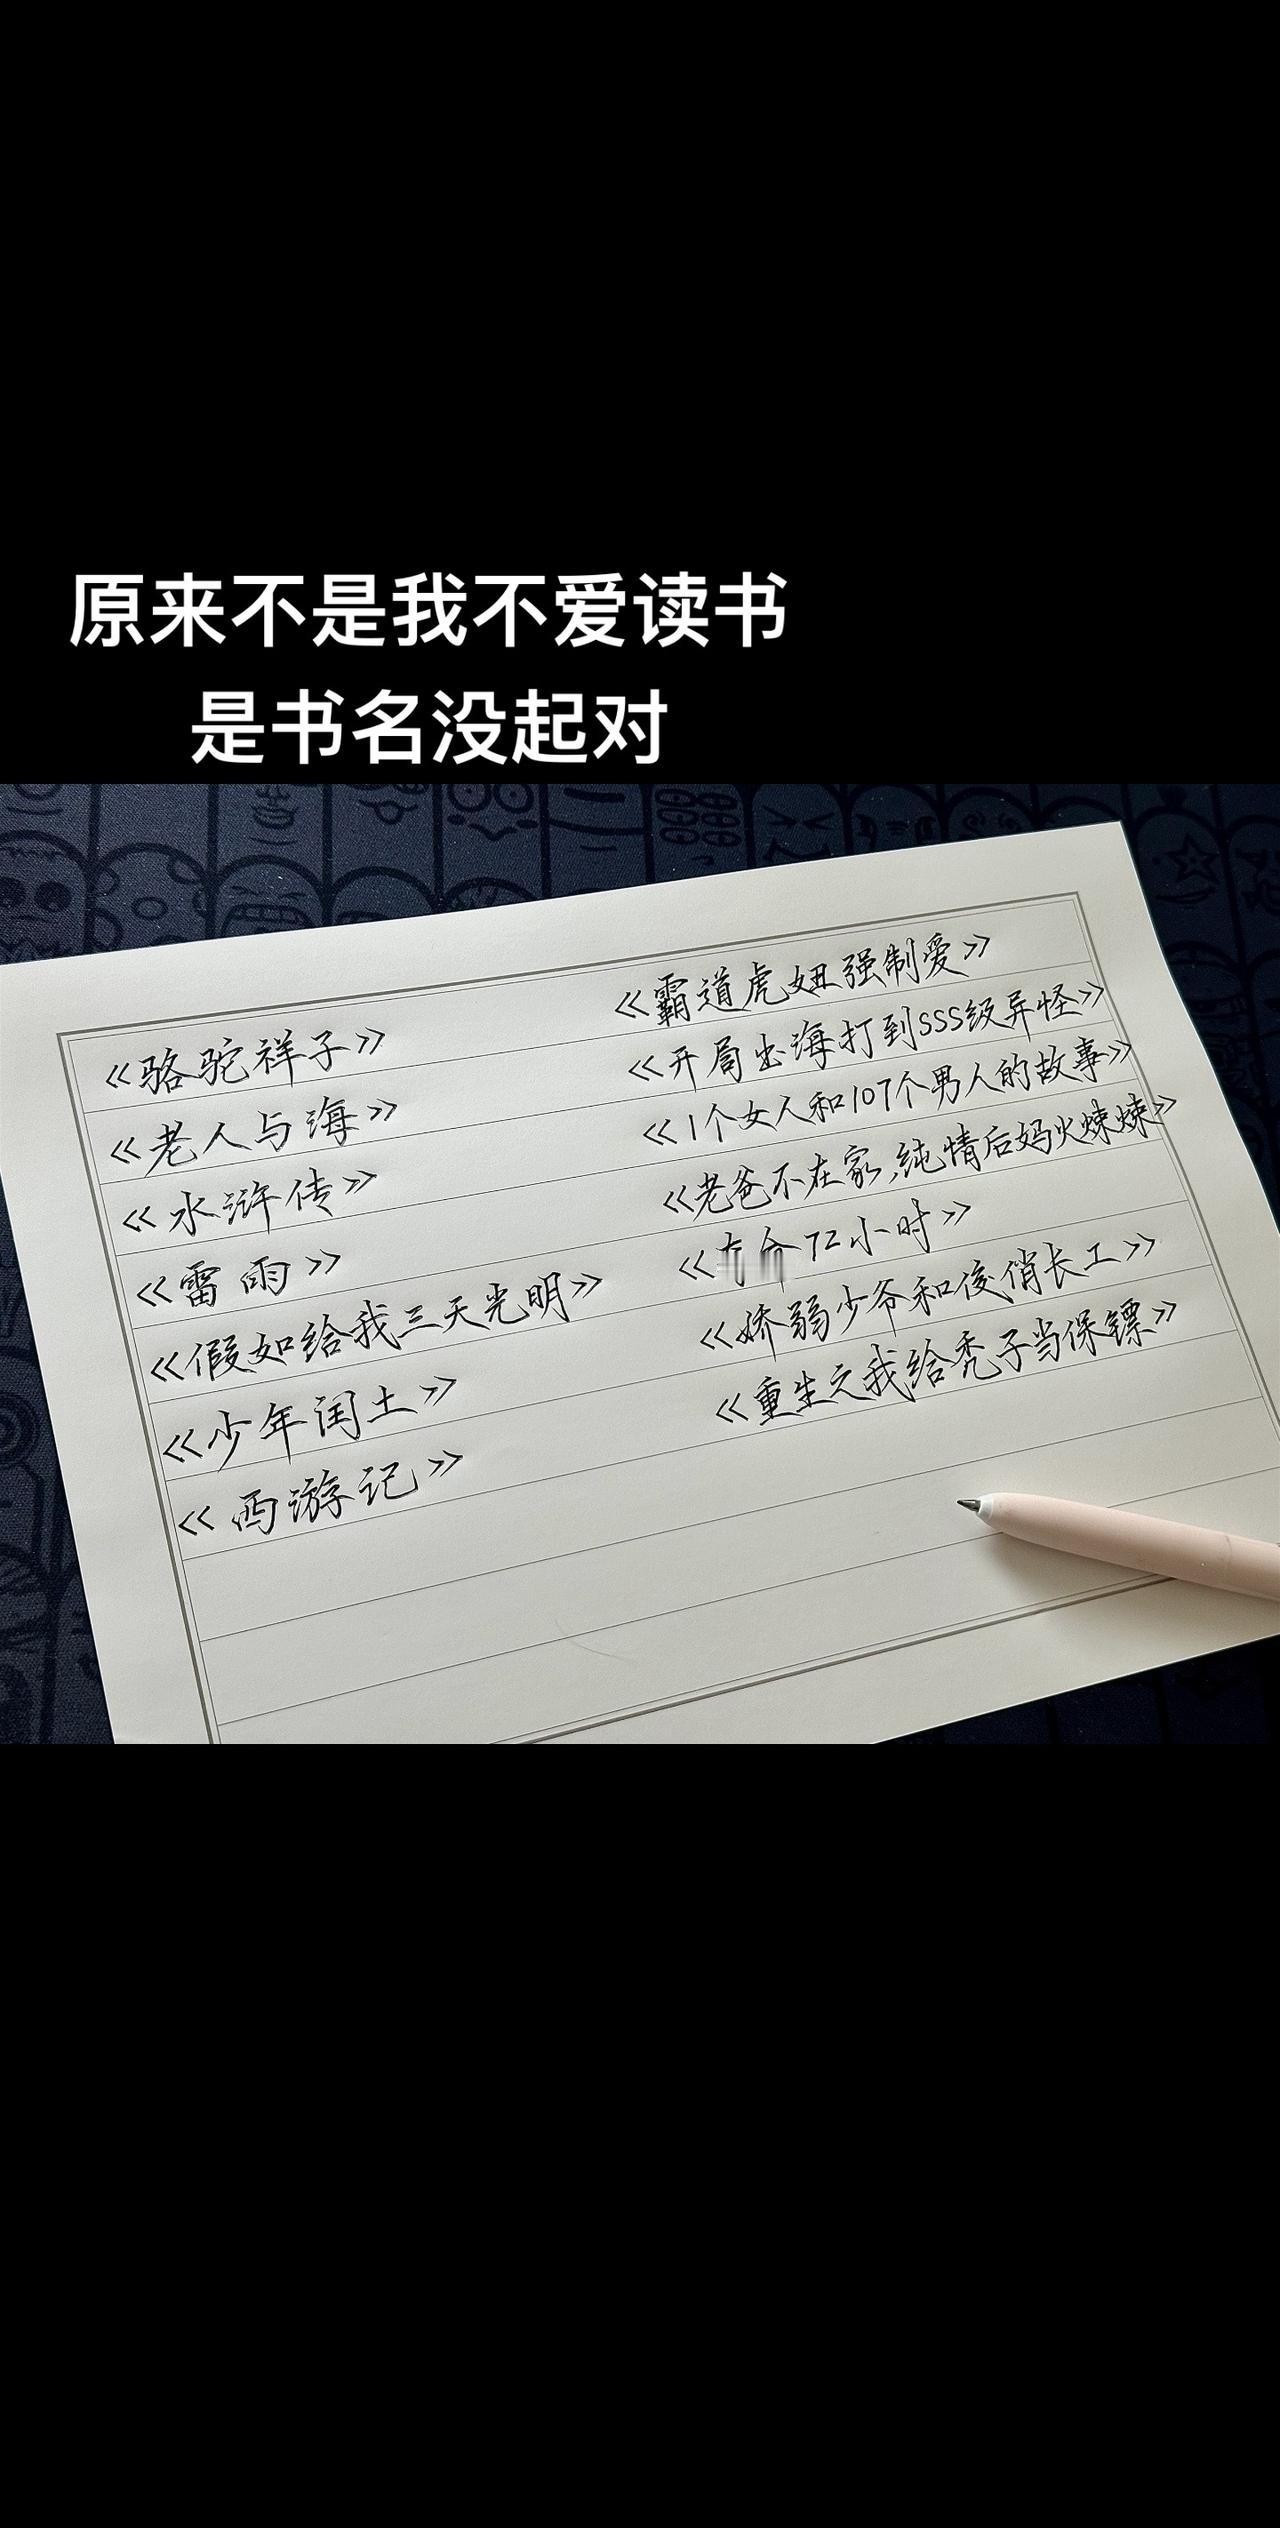 原来不是我不爱读书
是书名没起对
《骆驼祥子》
《老人与海》
《水浒传》
《雷雨》
《假如给我三天光明》
《少年闰土》
《西游记》
《霸道虎妞强制爱》
《开局出海打到SSS级异怪》
《1个女人和107个男人的故事》
《老爸不在家,纯情后妈火辣辣》
72小时》
《娇弱少爷和俊俏长工》
《重生之我给秃子当保镖》